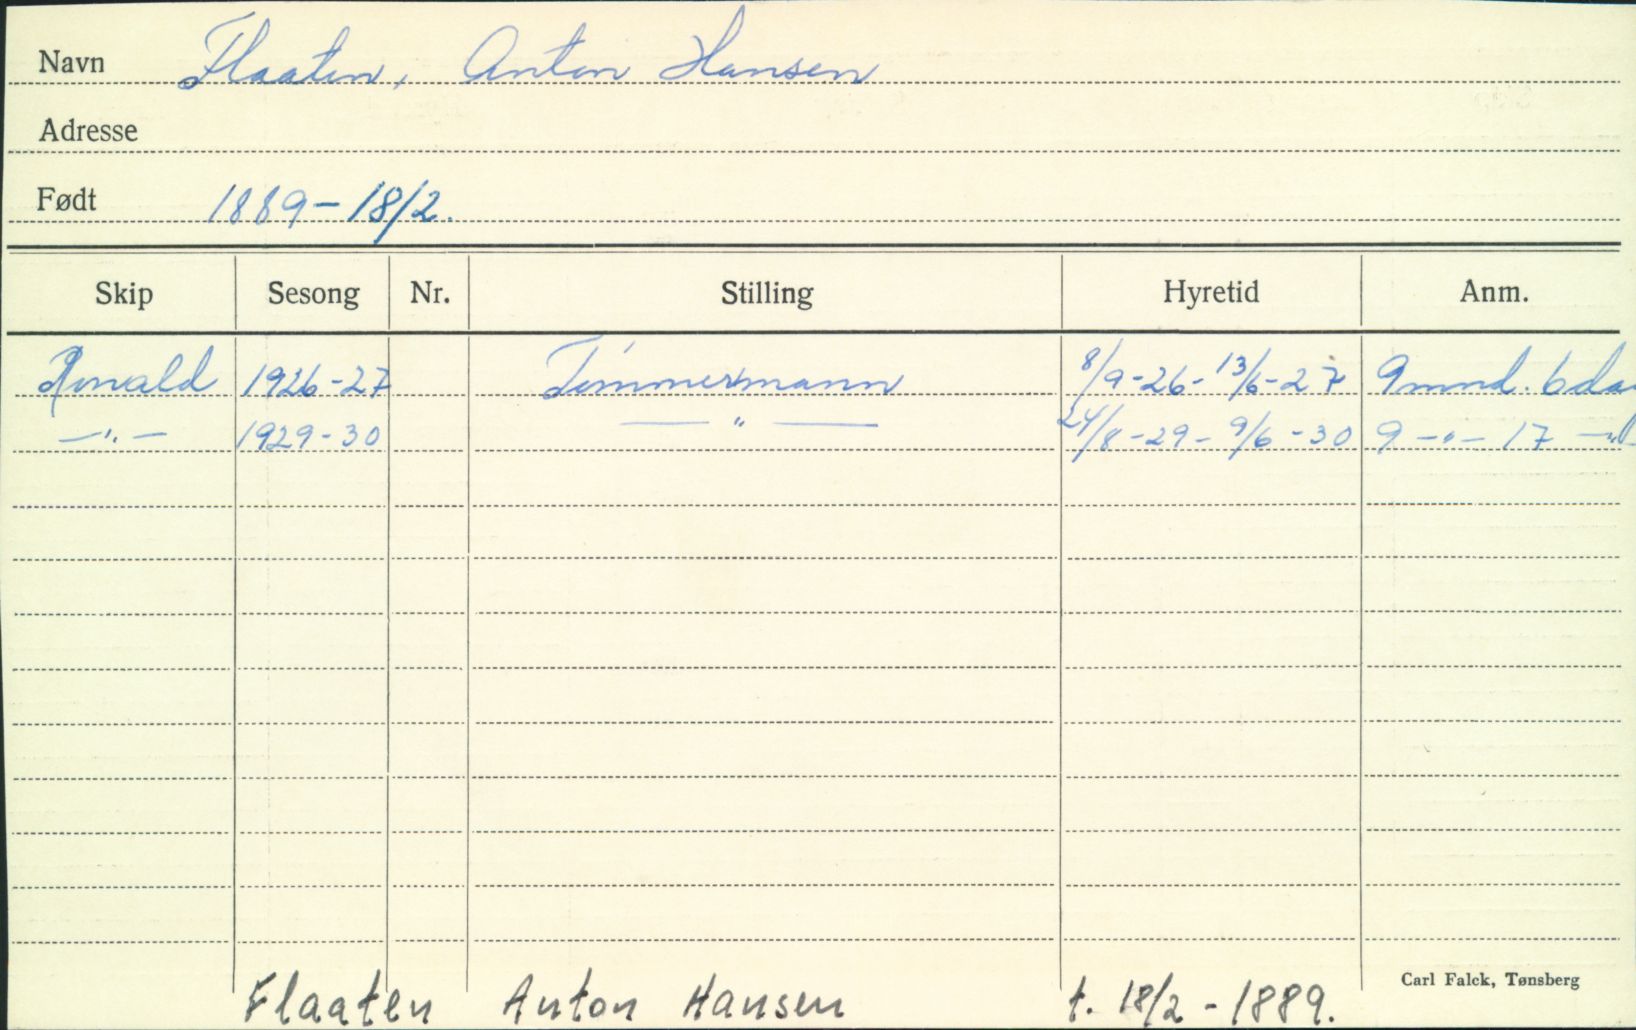 Navn Flaaten, Anton Hansen
Adresse
Født 1889-18/2.
Skip Sesong Nr. Stilling Hyretid Anm.
Ronald 1926-27 Tømmermann 8/9-26-13/6-27 9 mnd. 6 da
—"— 1929-30 —"— 24/8-29-9/6-30 9 —"— 17 —"—
Carl Falck, Tønsberg
Flaaten Anton Hansen f. 18/2-1889.